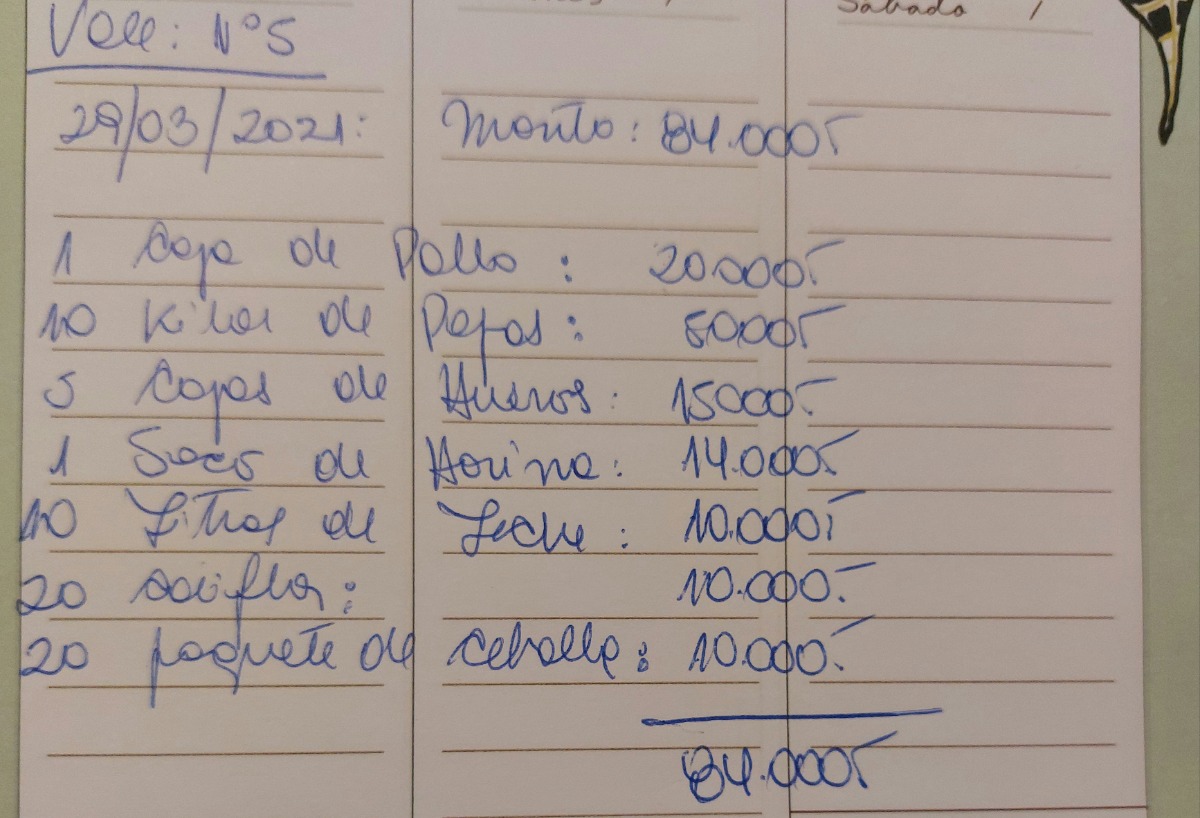 Sabado /
Vale: N°5
29/03/2021: Monto: 84.000.-
1 Caja de Pollo: 20.000.-
10 Kilos de Papas: 5000.-
5 Cajas de Huevos: 15000.-
1 Saco de Harina: 14.000.-
10 Litros de Leche: 10.000.-
20 coliflor: 10.000.-
20 paquete de cebolla: 10.000.-
84.000.-